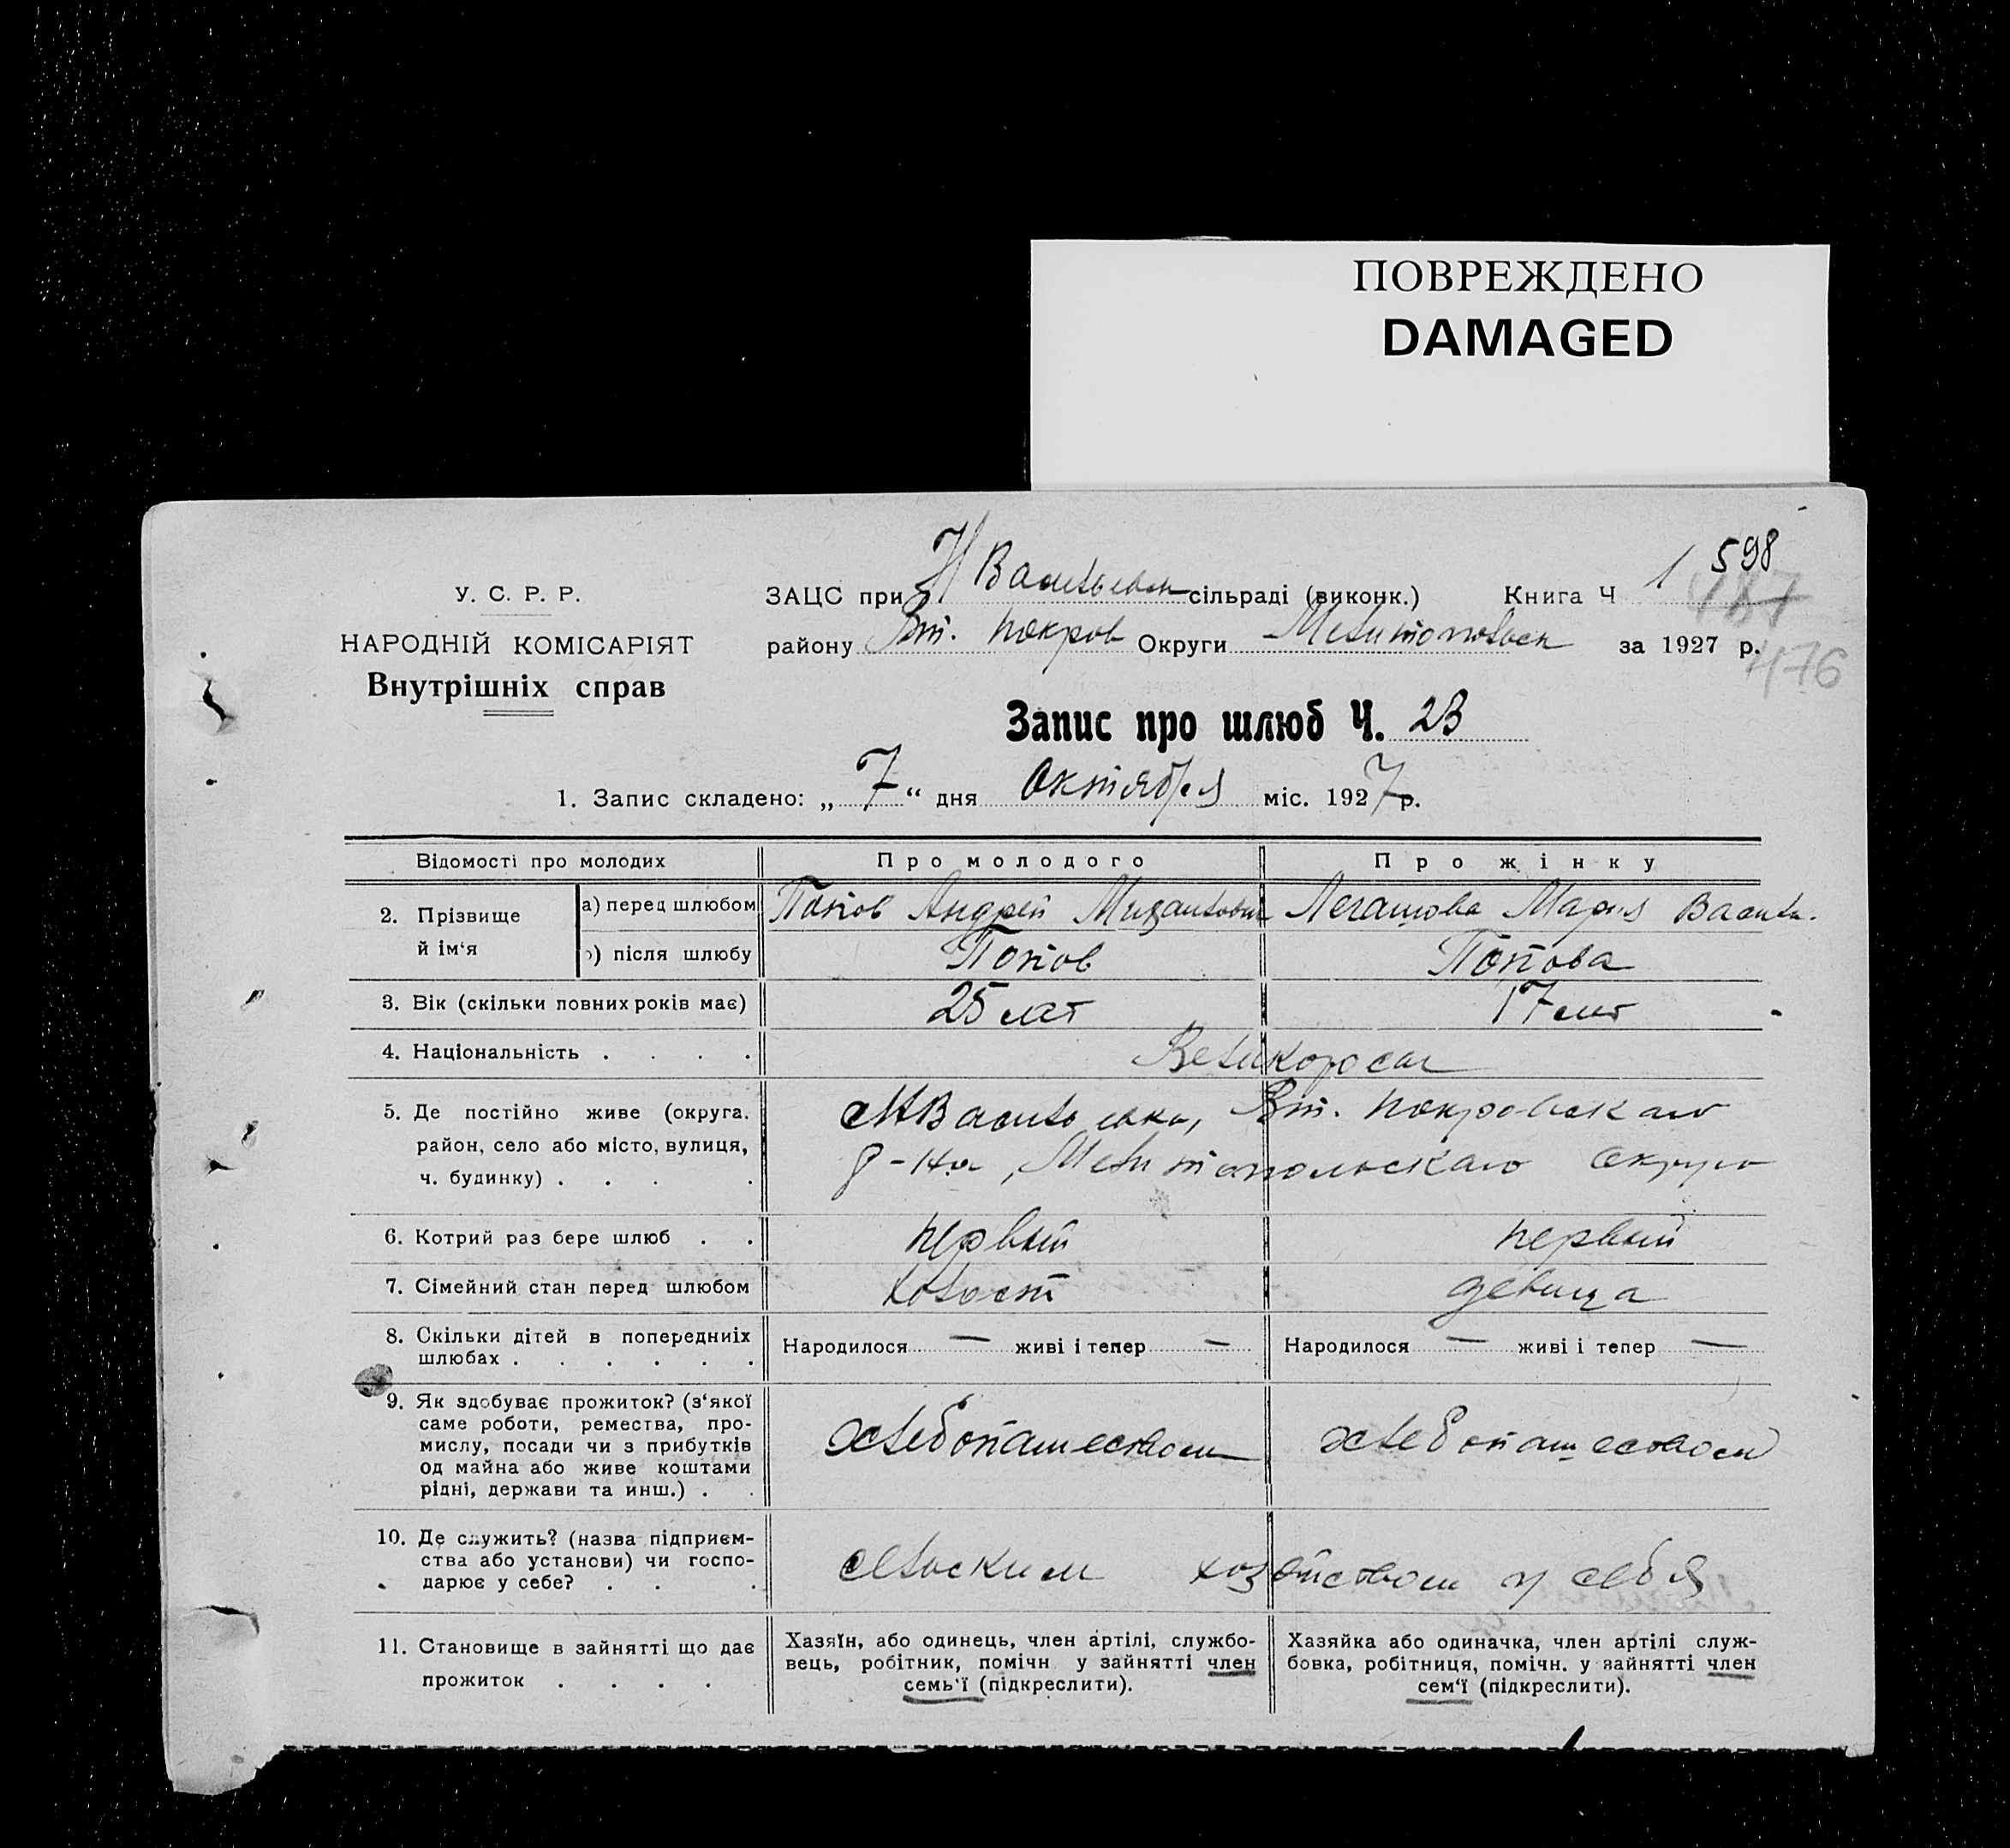 ПОВРЕЖДЕНО
DAMAGED
598
У. С. Р. Р.
ЗАЦС при Н Васильевск сільраді (виконк.) Книга Ч 1 487
НАРОДНІЙ КОМІСАРІЯТ
району Вт. Покров Округи Мелитопольск за 1927 р.
476
Внутрішніх справ
Запис про шлюб Ч. 23
1. Запис складено: „ 7 “ дня Октября міс. 1927 р.
Відомості про молодих Про молодого Про жінку
2. Прізвище й ім‘я
а) перед шлюбом Попов Андрей Михайлович Легашова Мария Василь.
б) після шлюбу Попов Попова
3. Вік (скільки повних років має) 25 лет 17 лет
4. Національність . . . . Великоросси
5. Де постійно живе (округа, с НВасильевка, Вт. Покровскаго
район, село або місто, вулиця, р-на, Мелитопольскаго Округа
ч. будинку) . . . .
6. Котрий раз бере шлюб . . первый первый
7. Сімейний стан перед шлюбом холост девица
8. Скільки дітей в попередниіх
шлюбах . . . . . .
Народилося — живі і тепер — Народилося — живі і тепер —
9. Як здобуває прожиток? (з‘якої
саме роботи, ремества, про-
мислу, посади чи з прибутків
од майна або живе коштами
рідні, держави та инш.) . .
хлебопашеством хлебопашеством
10. Де служить? (назва підприєм-
ства або установи) чи госпо-
дарює у себе? . . .
сельским хозяйством у себя
11. Становище в зайнятті що дає
прожиток . . . .
Хазяїн, або одинець, член артілі, службо-
вець, робітник, помічн у зайнятті член
семь‘ї (підкреслити).
Хазяйка або одиначка, член артілі служ-
бовка, робітниця, помічн. у зайнятті член
сем‘ї (підкреслити).